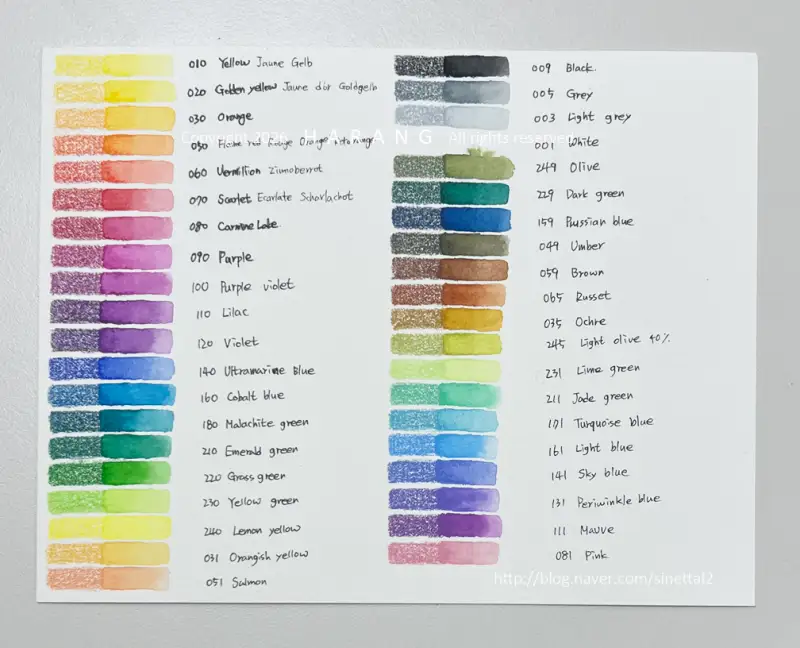 010 Yellow Jaune Gelb
020 Golden yellow Jaune d'or Goldgelb
030 Orange
Copyright 2026 HARANG All rights reserved
030 Flame red Rouge Orange
060 Vermillion Zinnoberrot
070 Scarlet Ecarlate Scharlachot
080 Carmine Lake
090 Purple
100 Purple violet
110 Lilac
120 Violet
140 Ultramarine Blue
160 Cobalt blue
180 Malachite green
210 Emerald green
220 Grass green
230 Yellow green
240 Lemon yellow
031 Orangish yellow
051 Salmon
009 Black.
005 Grey
003 Light grey
001 White
249 Olive
229 Dark green
159 Prussian blue
049 Umber
059 Brown
065 Russet
035 Ochre
245 Light olive 40%
231 Lime green
211 Jade green
171 Turquoise blue
161 Light blue
141 Sky blue
131 Periwinkle blue
111 Mauve
081 Pink
http://blog.naver.com/sinettal2